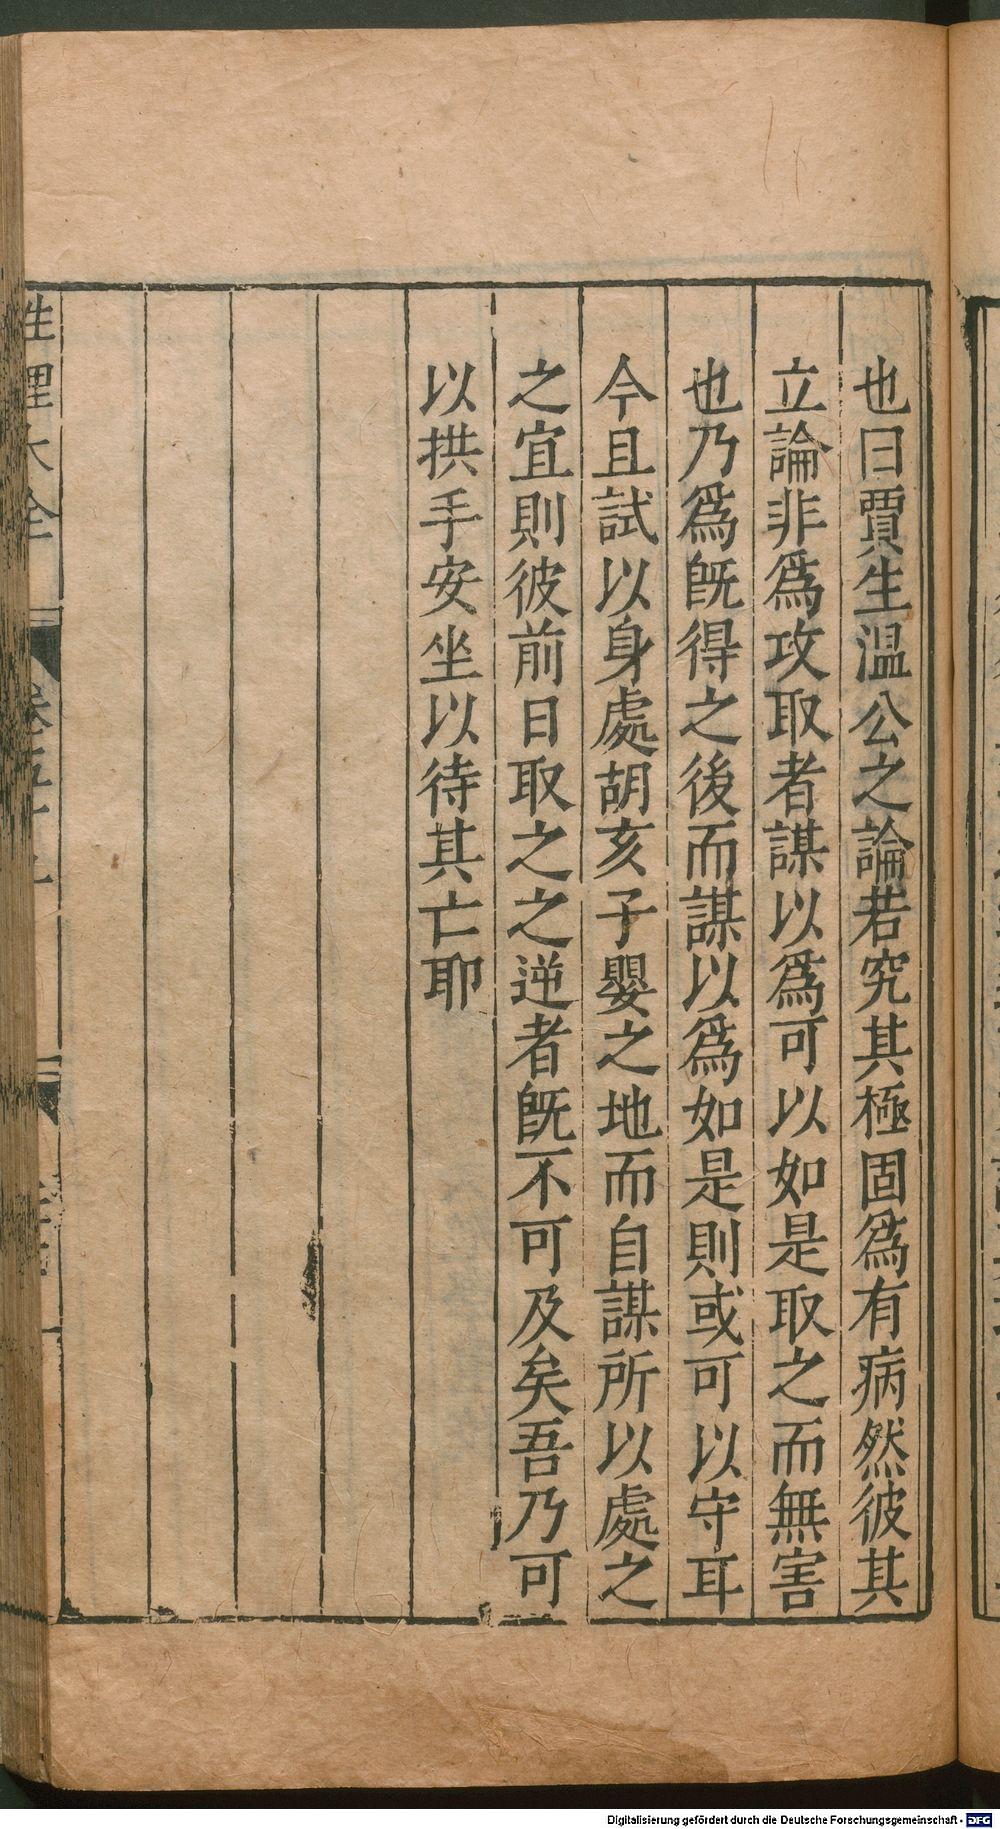 也曰賈生温公之論若究其極固爲有病然彼其
立論非爲攻取者謀以爲可以如是取之而無害
也乃爲旣得之後而謀以爲如是則或可以守耳
今且試以身處胡亥子嬰之地而自謀所以處之
之宜則彼前日取之之逆者旣不可及矣吾乃可
以拱手安坐以待其亡耶
性理大全
Digitalisierung gefördert durch die Deutsche Forschungsgemeinschaft - DFG